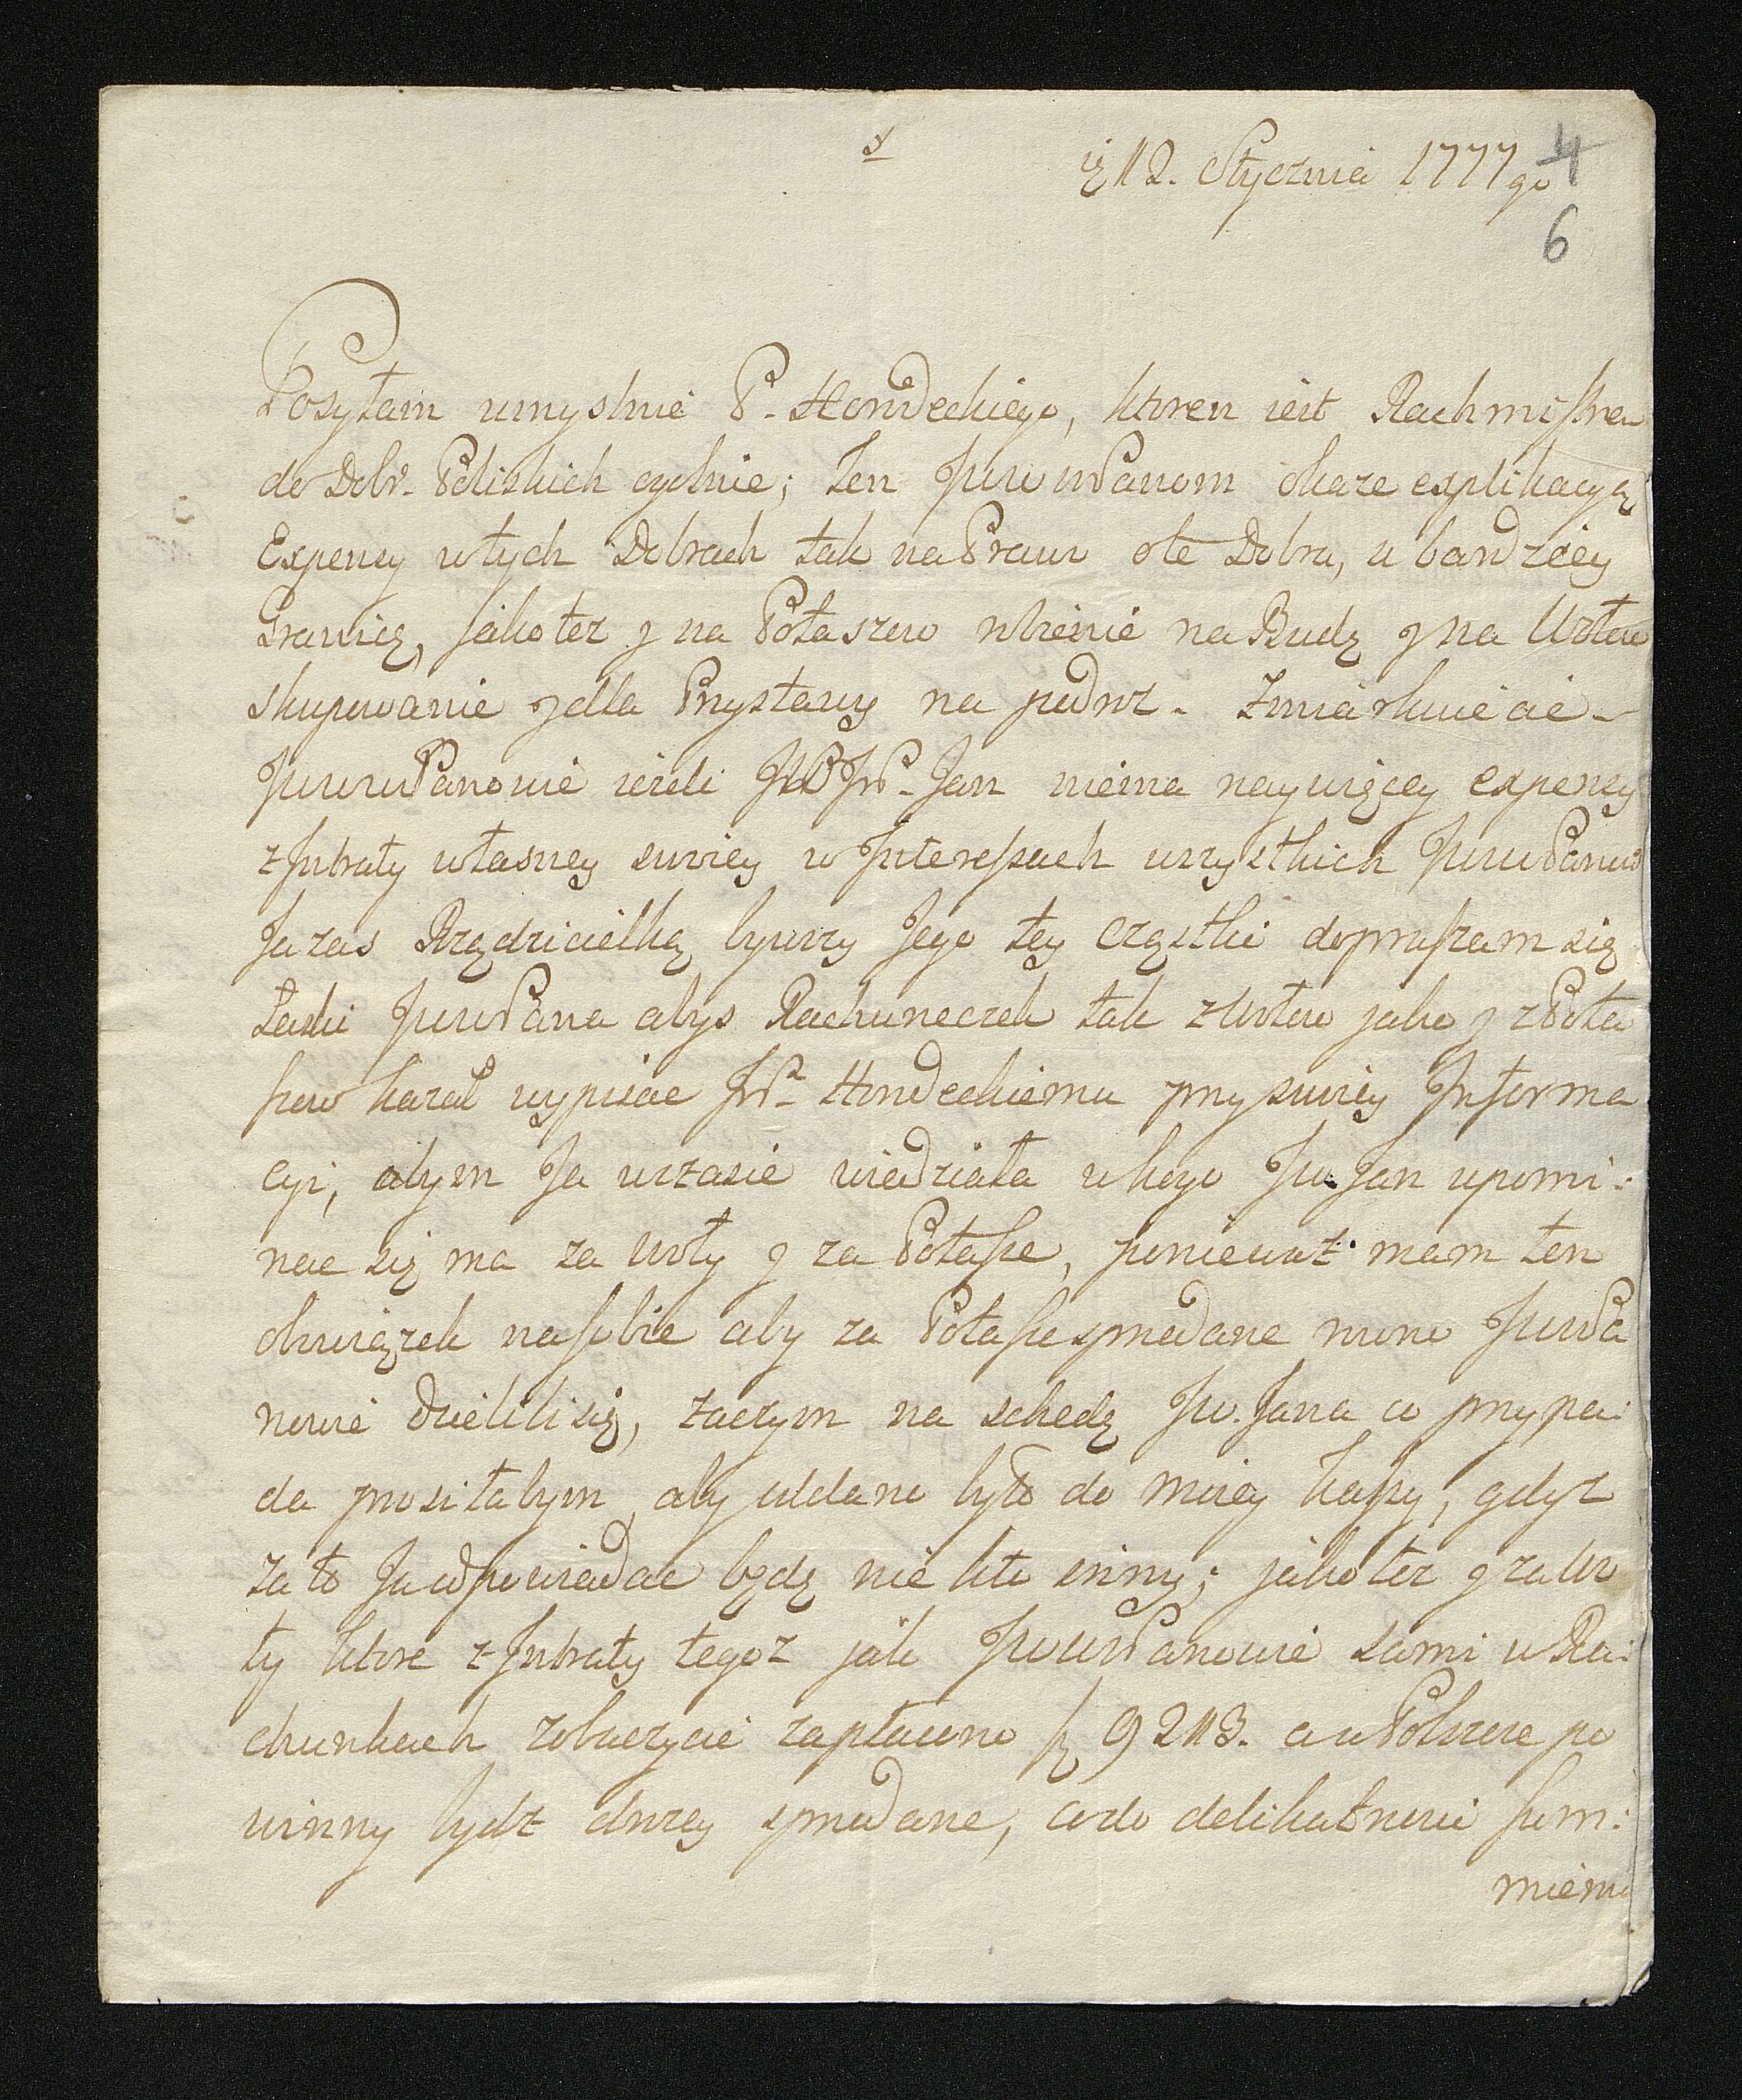 12. Stycznia 1777 go
4
6
Posyłam umyslnie P. Hondeckiego, ktoren iest Rachmistrzem
do Dobr. Poliskich ogolnie; ten JwwPanom okaze explikacyą
Expensy wtych Dobrach tak na Praw ote Dobra, a bardziey
Granicę, jako tez y na Potaszow robienie na Rudę y na Wołow
skupowanie ydlla Przystawy na podroz. Zmiarkuiecie
JwwPanowie iezeli Jan niema naywięcey expensy
z Jntraty własney swoiey w Jnteressach wszystkich JwwPanow
Ja zas Rządzicielką bywszy Jego tey cząstki dopraszam się
Łaski JwwPana abys Rachuneczek tak z Wołow jako y z Pota
szow kazał wypisac JP. Hondeckiemu przy swoiey Jnforma
cyi, abym Ja wczasie wiedziała u kogo Jw Jan upomi:
nac się ma za Woły y za Potasze, poniewaz mam ten
obwiązek na sobie aby za Potasze przedane rowno JwwPa
nowie dzielili się, zaczym na schedę Jw. Jana co przypa:
da prosiłabym, aby oddano było do moiey kassy, gdyz
za to Ja odpowiadac będę nie kto inny; jako tez y za Wo
ły ktore z Jntraty tegoz jak JwwPanowie sami w Ra:
chunkach zobaczycie zapłacono 9213. a w Polszcze po
winny bydz drozey przedane, co do delikatnosci som:
mieniu